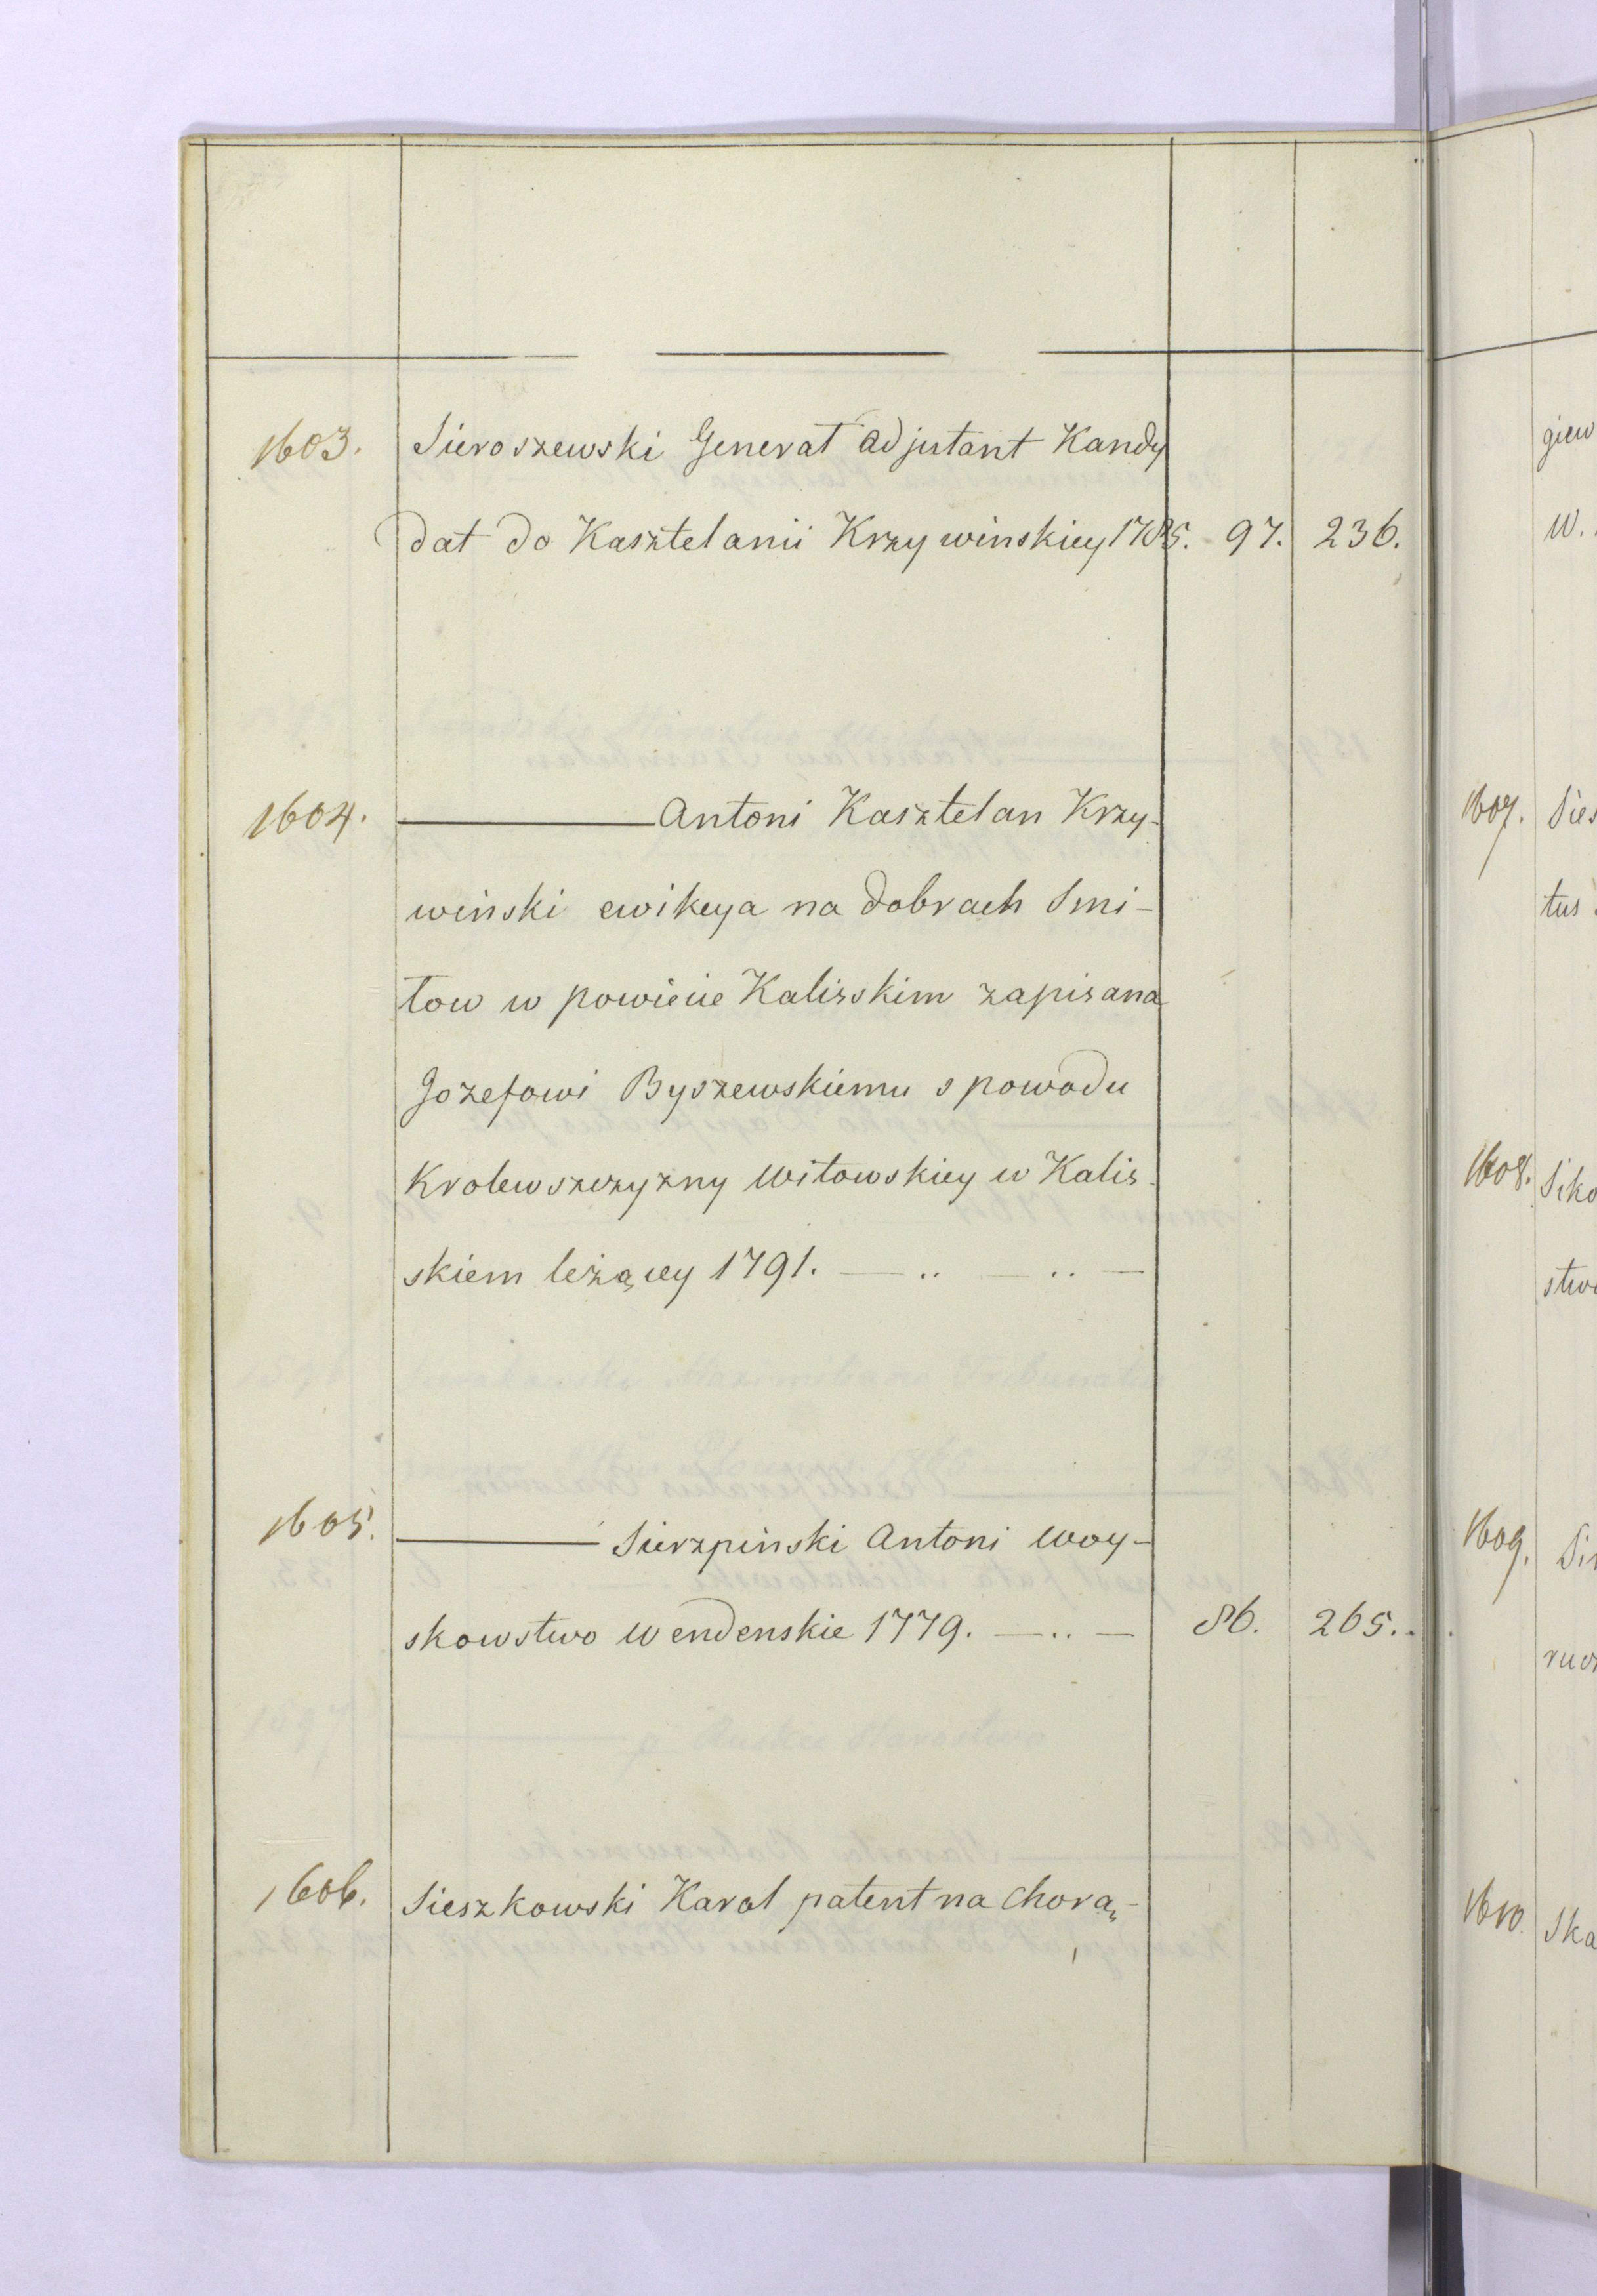 1603. Sieroszewski Generał Adjutant Kandy
dat do Kasztelanii Krzywinskiey 1785. 97. 236.
1604. ——— Antoni Kasztelan Krzy-
winski ewikcya na dobrach Smi-
łow w powiecie Kaliskim zapisana
Jozefowi Byszewskiemu s powodu
Krolewszczyzny Witowskiey w Kalis-
skiem leżącey 1791. — .. — .. —
1605. ——— Sierzpinski Antoni Woy-
skowstwo Wendenskie 1779. — .. — 86. 265.
1606. Sieszkowski Karol patent na Chorą-
giew
w.
1607. Sies
tus
1608. Siko
stwo
1609. Sir
1610. Ska